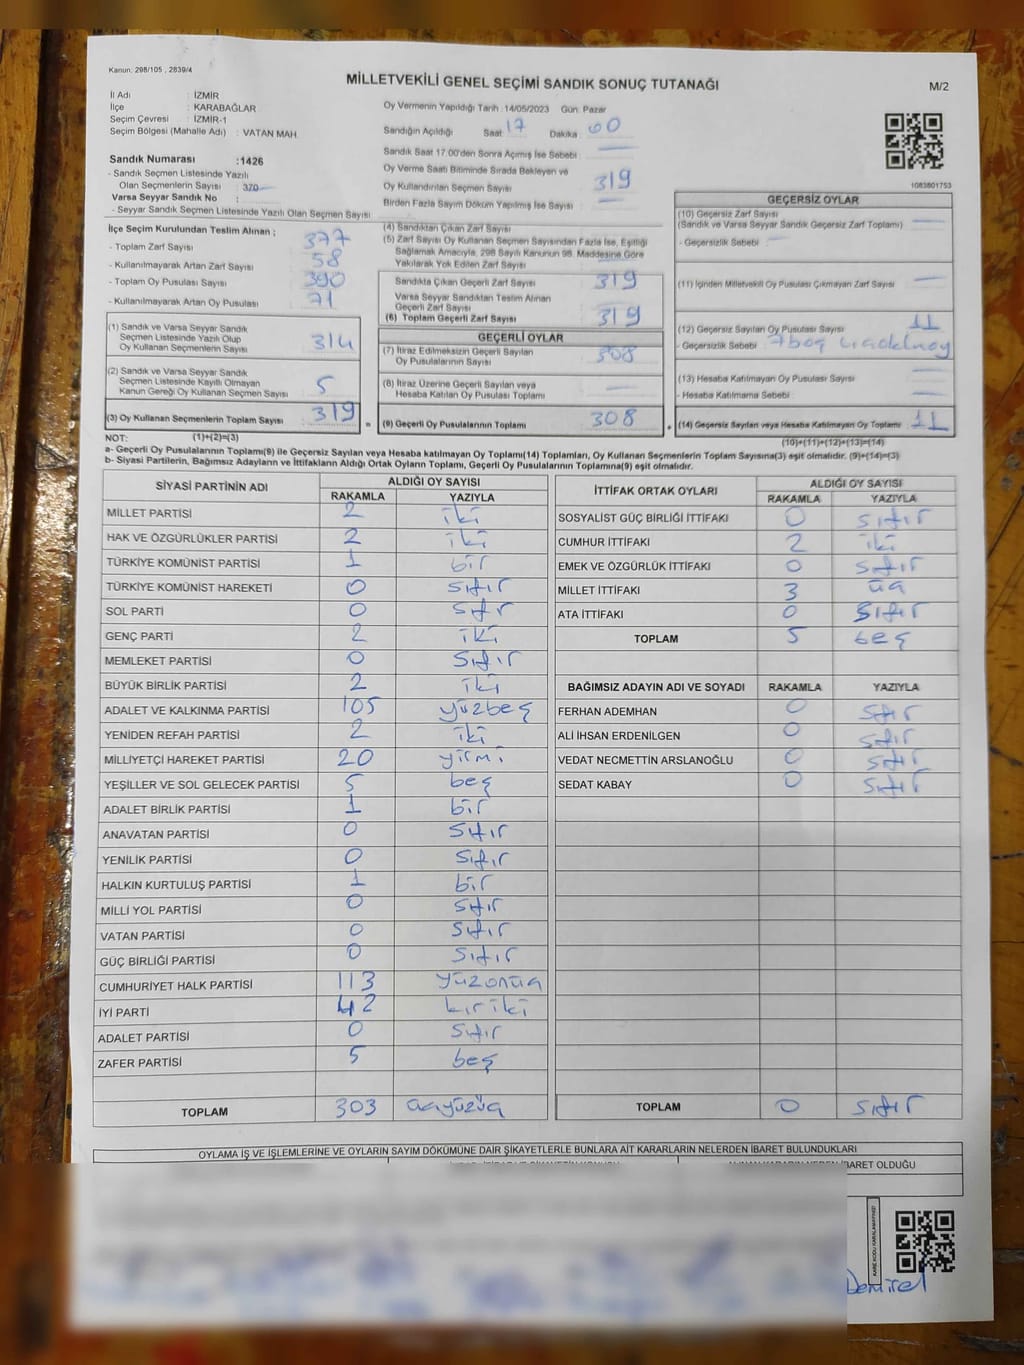 Kanun: 298/105 , 2839/4
MİLLETVEKİLİ GENEL SEÇİMİ SANDIK SONUÇ TUTANAĞI
M/2
İl Adı : İZMİR
İlçe : KARABAĞLAR
Seçim Çevresi : İZMİR-1
Seçim Bölgesi (Mahalle Adı) : VATAN MAH.
Oy Vermenin Yapıldığı Tarih : 14/05/2023 Gün: Pazar
Sandığın Açıldığı Saat 17 Dakika 00
Sandık Saat 17.00'den Sonra Açımış İse Sebebi :
Oy Verme Saati Bitiminde Sırada Bekleyen ve
Oy Kullandırılan Seçmen Sayısı 319
Birden Fazla Sayım Döküm Yapılmış İse Sayısı :
1083801753
Sandık Numarası :1426
- Sandık Seçmen Listesinde Yazılı
Olan Seçmenlerin Sayısı : 370
Varsa Seyyar Sandık No :
- Seyyar Sandık Seçmen Listesinde Yazılı Olan Seçmen Sayısı
İlçe Seçim Kurulundan Teslim Alınan ;
- Toplam Zarf Sayısı : 377
- Kullanılmayarak Artan Zarf Sayısı : 58
- Toplam Oy Pusulası Sayısı : 390
- Kullanılmayarak Artan Oy Pusulası : 71
(1) Sandık ve Varsa Seyyar Sandık
Seçmen Listesinde Yazılı Olup
Oy Kullanan Seçmenlerin Sayısı 314
(2) Sandık ve Varsa Seyyar Sandık
Seçmen Listesinde Kayıtlı Olmayan
Kanun Gereği Oy Kullanan Seçmen Sayısı 5
(3) Oy Kullanan Seçmenlerin Toplam Sayısı 319
(4) Sandıktan Çıkan Zarf Sayısı
(5) Zarf Sayısı Oy Kullanan Seçmen Sayısından Fazla İse, Eşitliği
Sağlamak Amacıyla, 298 Sayılı Kanunun 98. Maddesine Göre
Yakılarak Yok Edilen Zarf Sayısı
Sandıkta Çıkan Geçerli Zarf Sayısı 319
Varsa Seyyar Sandıktan Teslim Alınan
Geçerli Zarf Sayısı
(6) Toplam Geçerli Zarf Sayısı 319
GEÇERLİ OYLAR
(7) İtiraz Edilmeksizin Geçerli Sayılan
Oy Pusulası Sayısı 308
(8) İtiraz Üzerine Geçerli Sayılan veya
Hesaba Katılan Oy Pusulası Toplamı
(9) Geçerli Oy Pusulalarının Toplamı 308
GEÇERSİZ OYLAR
(10) Geçersiz Zarf Sayısı
(Sandık ve Varsa Seyyar Sandık Geçersiz Zarf Toplamı)
- Geçersizlik Sebebi
(11) İçinden Milletvekili Oy Pusulası Çıkmayan Zarf Sayısı
(12) Geçersiz Sayılan Oy Pusulası Sayısı 11
- Geçersizlik Sebebi 7 boş
(13) Hesaba Katılmayan Oy Pusulası Sayısı
- Hesaba Katılmama Sebebi
(14) Geçersiz Sayılan veya Hesaba Katılmayan Oy Toplamı 11
NOT: (1)+(2)=(3)
(10)+(11)+(12)+(13)=(14)
a- Geçerli Oy Pusulalarının Toplamı(9) ile Geçersiz Sayılan veya Hesaba katılmayan Oy Toplamı(14) Toplamları, Oy Kullanan Seçmenlerin Toplam Sayısına(3) eşit olmalıdır. (9)+(14)=(3)
b- Siyasi Partilerin, Bağımsız Adayların ve İttifakların Aldığı Ortak Oyların Toplamı, Geçerli Oy Pusulalarının Toplamına(9) eşit olmalıdır.
SİYASİ PARTİNİN ADI ALDIĞI OY SAYISI
RAKAMLA YAZIYLA
MİLLET PARTİSİ 2 iki
HAK VE ÖZGÜRLÜKLER PARTİSİ 2 iki
TÜRKİYE KOMÜNİST PARTİSİ 1 bir
TÜRKİYE KOMÜNİST HAREKETİ 0 sıfır
SOL PARTİ 0 sıfır
GENÇ PARTİ 2 iki
MEMLEKET PARTİSİ 0 sıfır
BÜYÜK BİRLİK PARTİSİ 2 iki
ADALET VE KALKINMA PARTİSİ 105 yüzbeş
YENİDEN REFAH PARTİSİ 2 iki
MİLLİYETÇİ HAREKET PARTİSİ 20 yirmi
YEŞİLLER VE SOL GELECEK PARTİSİ 5 beş
ADALET BİRLİK PARTİSİ 1 bir
ANAVATAN PARTİSİ 0 sıfır
YENİLİK PARTİSİ 0 sıfır
HALKIN KURTULUŞ PARTİSİ 1 bir
MİLLİ YOL PARTİSİ 0 sıfır
VATAN PARTİSİ 0 sıfır
GÜÇ BİRLİĞİ PARTİSİ 0 sıfır
CUMHURİYET HALK PARTİSİ 113 yüzonüç
İYİ PARTİ 42 kırkiki
ADALET PARTİSİ 0 sıfır
ZAFER PARTİSİ 5 beş
TOPLAM 303 üçyüzüç
İTTİFAK ORTAK OYLARI ALDIĞI OY SAYISI
RAKAMLA YAZIYLA
SOSYALİST GÜÇ BİRLİĞİ İTTİFAKI 0 sıfır
CUMHUR İTTİFAKI 2 iki
EMEK VE ÖZGÜRLÜK İTTİFAKI 0 sıfır
MİLLET İTTİFAKI 3 üç
ATA İTTİFAKI 0 sıfır
TOPLAM 5 beş
BAĞIMSIZ ADAYIN ADI VE SOYADI RAKAMLA YAZIYLA
FERHAN ADEMHAN 0 sıfır
ALİ İHSAN ERDENİLGEN 0 sıfır
VEDAT NECMETTİN ARSLANOĞLU 0 sıfır
SEDAT KABAY 0 sıfır
TOPLAM 0 sıfır
OYLAMA İŞ VE İŞLEMLERİNE VE OYLARIN SAYIM DÖKÜMÜNE DAİR ŞİKAYETLERLE BUNLARA AİT KARARLARIN NELERDEN İBARET BULUNDUKLARI
İBARET OLDUĞU
KARE KODU KARALAMAYINIZ!
Demirel